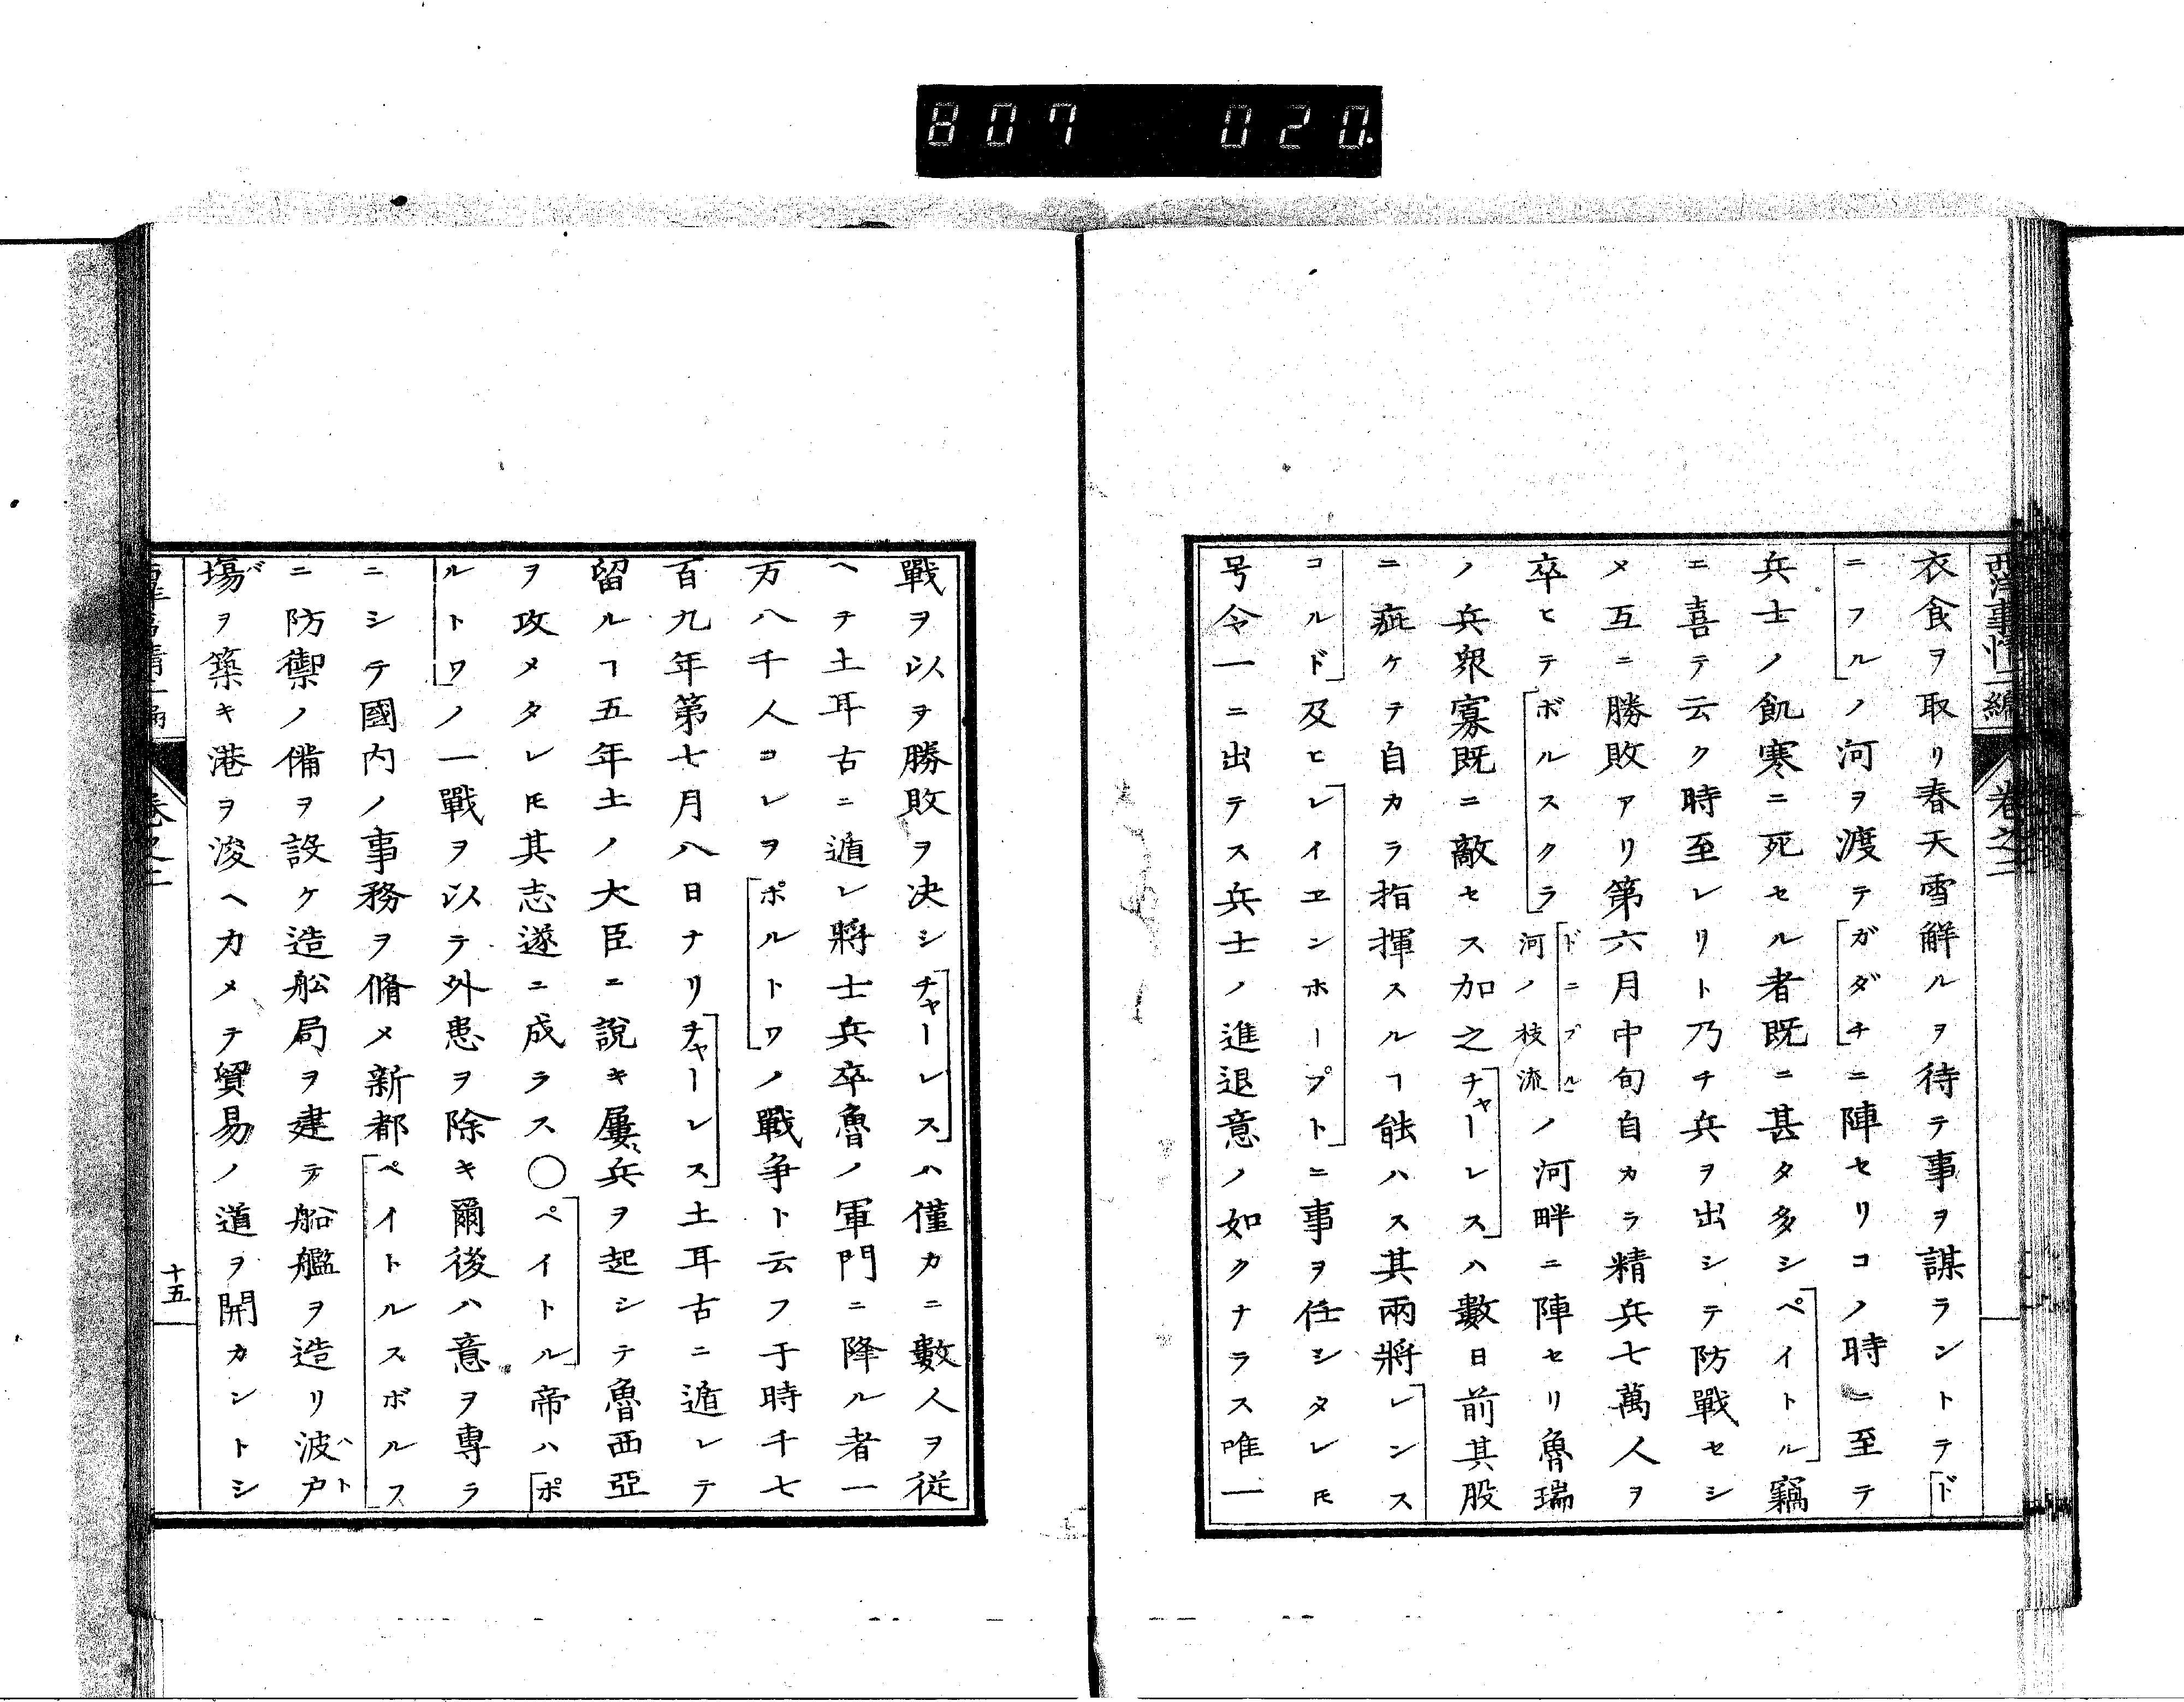 807 020.
西洋事情二編 卷之二
衣食ヲ取リ春天雪解ルヲ待テ事ヲ謀ラントテド
ニフルノ河ヲ渡テガダチニ陣セリコノ時ニ至テ
兵士ノ飢寒ニ死セル者既ニ甚タ多シペイトル竊
ニ喜テ云ク時至レリト乃チ兵ヲ出シテ防戰セシ
メ互ニ勝敗アリ第六月中旬自カラ精兵七萬人ヲ
卒ヒテボルスクラドニプル河ノ枝流ノ河畔ニ陣セリ魯瑞
ノ兵衆寡既ニ敵セス加之チャーレスハ數日前其股
ニ疵ケテ自カラ指揮スルヿ能ハス其兩將レンス
コルド及ヒレイヱンホープトニ事ヲ任シタレ𪜈
号令一ニ出テス兵士ノ進退意ノ如クナラス唯一
戰ヲ以ヲ勝敗ヲ决シチャーレスハ僅カニ數人ヲ従
ヘテ土耳古ニ遁レ將士兵卒魯ノ軍門ニ降ル者一
万八千人コレヲポルトワノ戰争ト云フ于時千七
百九年第七月八日ナリチャーレス土耳古ニ遁レテ
留ルヿ五年土ノ大臣ニ說キ屢〻兵ヲ起シテ魯西亞
ヲ攻メタレ𪜈其志遂ニ成ラス〇ペイトル帝ハポ
ルトワノ一戰ヲ以テ外患ヲ除キ爾後ハ意ヲ專ラ
ニシテ國内ノ事務ヲ脩メ新都ペイトルスボルス
ニ防禦ノ備ヲ設ケ造舩局ヲ建テ船艦ヲ造リ波戸ハト
塲バヲ築キ港ヲ浚ヘカメテ貿易ノ道ヲ開カントシ
西洋事情二編 卷之二 十五